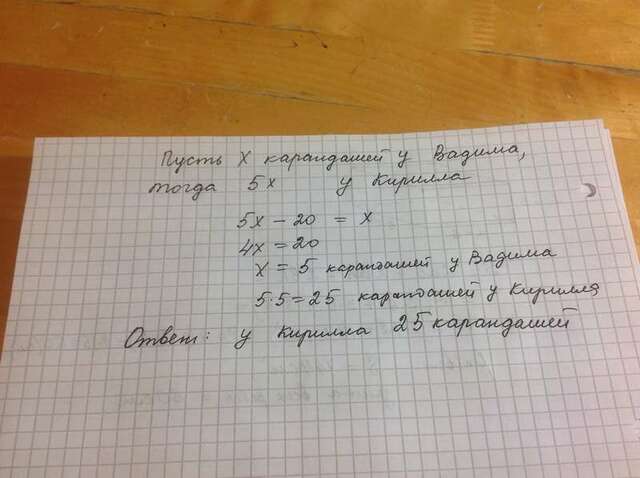 Пусть X карандашей у Вадима,
тогда 5x у Кирилла
5x - 20 = x
4x = 20
x = 5 карандашей у Вадима
5·5=25 карандашей у Кирилля
Ответ: у Кирилла 25 карандашей